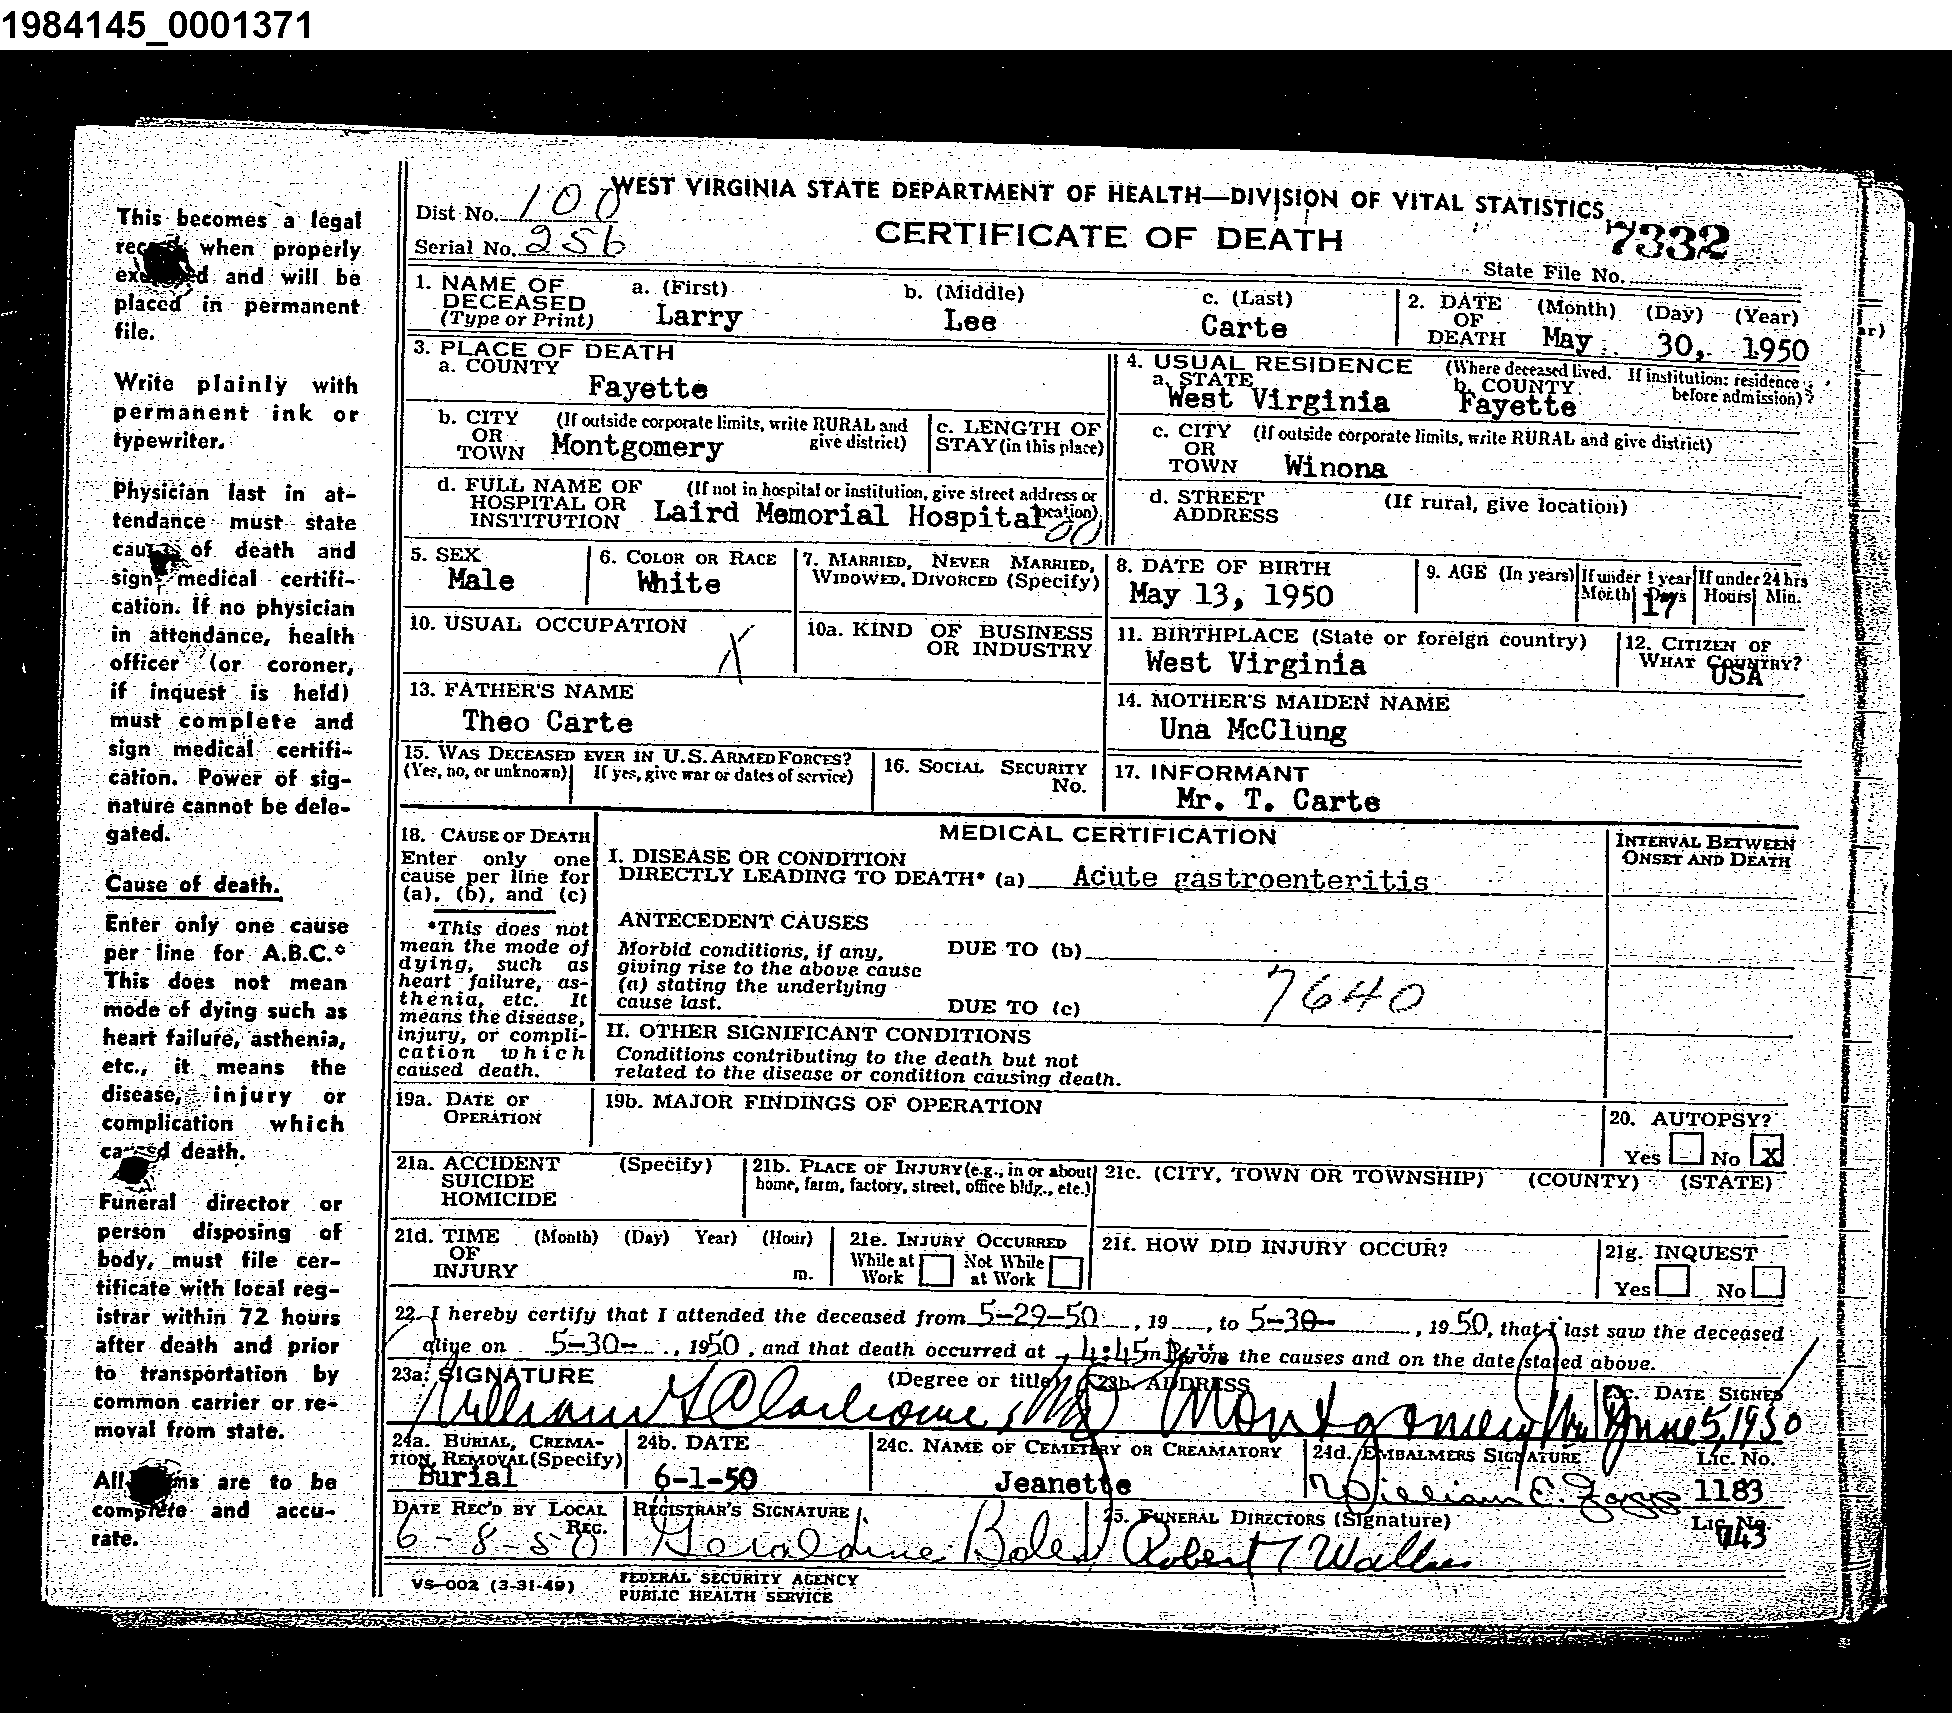 1984145_0001371
This becomes a legal
when properly
and will be
placed in permanent
file.
Write plainly with
permanent ink or
typewriter.
Physician last in at-
tendance must state
of death and
sign medical certifi-
cation. If no physician
in attendance, health
officer (or coroner,
if inquest is held)
must complete and
sign medical certifi-
cation. Power of sig-
nature cannot be dele-
gated.
Cause of death.
Enter only one cause
per line for A.B.C.*
This does not mean
mode of dying such as
heart failure, asthenia,
etc., it means the
disease, injury or
complication which
death.
Funeral director or
person disposing of
body, must file cer-
tificate with local reg-
istrar within 72 hours
after death and prior
to transportation by
common carrier or re-
moval from state.
All are to be
complete and accu-
rate.
WEST VIRGINIA STATE DEPARTMENT OF HEALTH—DIVISION OF VITAL STATISTICS
Dist No. 100
CERTIFICATE OF DEATH
7332
Serial No. 256
State File No.
1. NAME OF DECEASED (Type or Print) a. (First) b. (Middle) c. (Last)
Larry Lee Carte
2. DATE OF DEATH (Month) (Day) (Year)
May 30, 1950
3. PLACE OF DEATH
a. COUNTY
Fayette
4. USUAL RESIDENCE (Where deceased lived. If institution: residence before admission)
a. STATE b. COUNTY
West Virginia Fayette
b. CITY OR TOWN (If outside corporate limits, write RURAL and give district)
Montgomery
c. LENGTH OF STAY (in this place)
c. CITY OR TOWN (If outside corporate limits, write RURAL and give district)
Winona
d. FULL NAME OF HOSPITAL OR INSTITUTION (If not in hospital or institution, give street address or location)
Laird Memorial Hospital
d. STREET ADDRESS (If rural, give location)
5. SEX
Male
6. COLOR OR RACE
White
7. MARRIED, NEVER MARRIED, WIDOWED, DIVORCED (Specify)
8. DATE OF BIRTH
May 13, 1950
9. AGE (In years) If under 1 year If under 24 hrs
Month Days Hours Min.
17
10. USUAL OCCUPATION
X
10a. KIND OF BUSINESS OR INDUSTRY
11. BIRTHPLACE (State or foreign country)
West Virginia
12. CITIZEN OF WHAT COUNTRY?
USA
13. FATHER'S NAME
Theo Carte
14. MOTHER'S MAIDEN NAME
Una McClung
15. WAS DECEASED EVER IN U.S. ARMED FORCES?
(Yes, no, or unknown) If yes, give war or dates of service)
16. SOCIAL SECURITY No.
17. INFORMANT
Mr. T. Carte
18. CAUSE OF DEATH
Enter only one
cause per line for
(a), (b), and (c)
*This does not
mean the mode of
dying, such as
heart failure, as-
thenia, etc. It
means the disease,
injury, or compli-
cation which
caused death.
MEDICAL CERTIFICATION
INTERVAL BETWEEN
ONSET AND DEATH
I. DISEASE OR CONDITION
DIRECTLY LEADING TO DEATH* (a) Acute gastroenteritis
ANTECEDENT CAUSES
Morbid conditions, if any, DUE TO (b)
giving rise to the above cause
(a) stating the underlying
cause last. DUE TO (c)
7640
II. OTHER SIGNIFICANT CONDITIONS
Conditions contributing to the death but not
related to the disease or condition causing death.
19a. DATE OF OPERATION
19b. MAJOR FINDINGS OF OPERATION
20. AUTOPSY?
Yes No X
21a. ACCIDENT SUICIDE HOMICIDE (Specify)
21b. PLACE OF INJURY (e.g., in or about home, farm, factory, street, office bldg., etc.)
21c. (CITY, TOWN OR TOWNSHIP) (COUNTY) (STATE)
21d. TIME OF INJURY (Month) (Day) Year) (Hour) m.
21e. INJURY OCCURRED
While at Work Not While at Work
21f. HOW DID INJURY OCCUR?
21g. INQUEST
Yes No
22. I hereby certify that I attended the deceased from 5-29-50, 19, to 5-30-, 19 50, that I last saw the deceased
alive on 5-30-, 1950, and that death occurred at 4:45 from the causes and on the date stated above.
23a. SIGNATURE (Degree or title) 23b. ADDRESS 23c. DATE SIGNED
William Montgomery June 5, 1950
24a. BURIAL, CREMATION, REMOVAL (Specify)
Burial
24b. DATE
6-1-50
24c. NAME OF CEMETERY OR CREAMATORY
Jeanette
24d. EMBALMERS SIGNATURE Lic. No.
William E. 1183
DATE REC'D BY LOCAL REG.
6-8-50
REGISTRAR'S SIGNATURE
Geraldine
25. FUNERAL DIRECTORS (Signature) Lic. No.
Robert 743
VS-002 (3-31-49) FEDERAL SECURITY AGENCY
PUBLIC HEALTH SERVICE